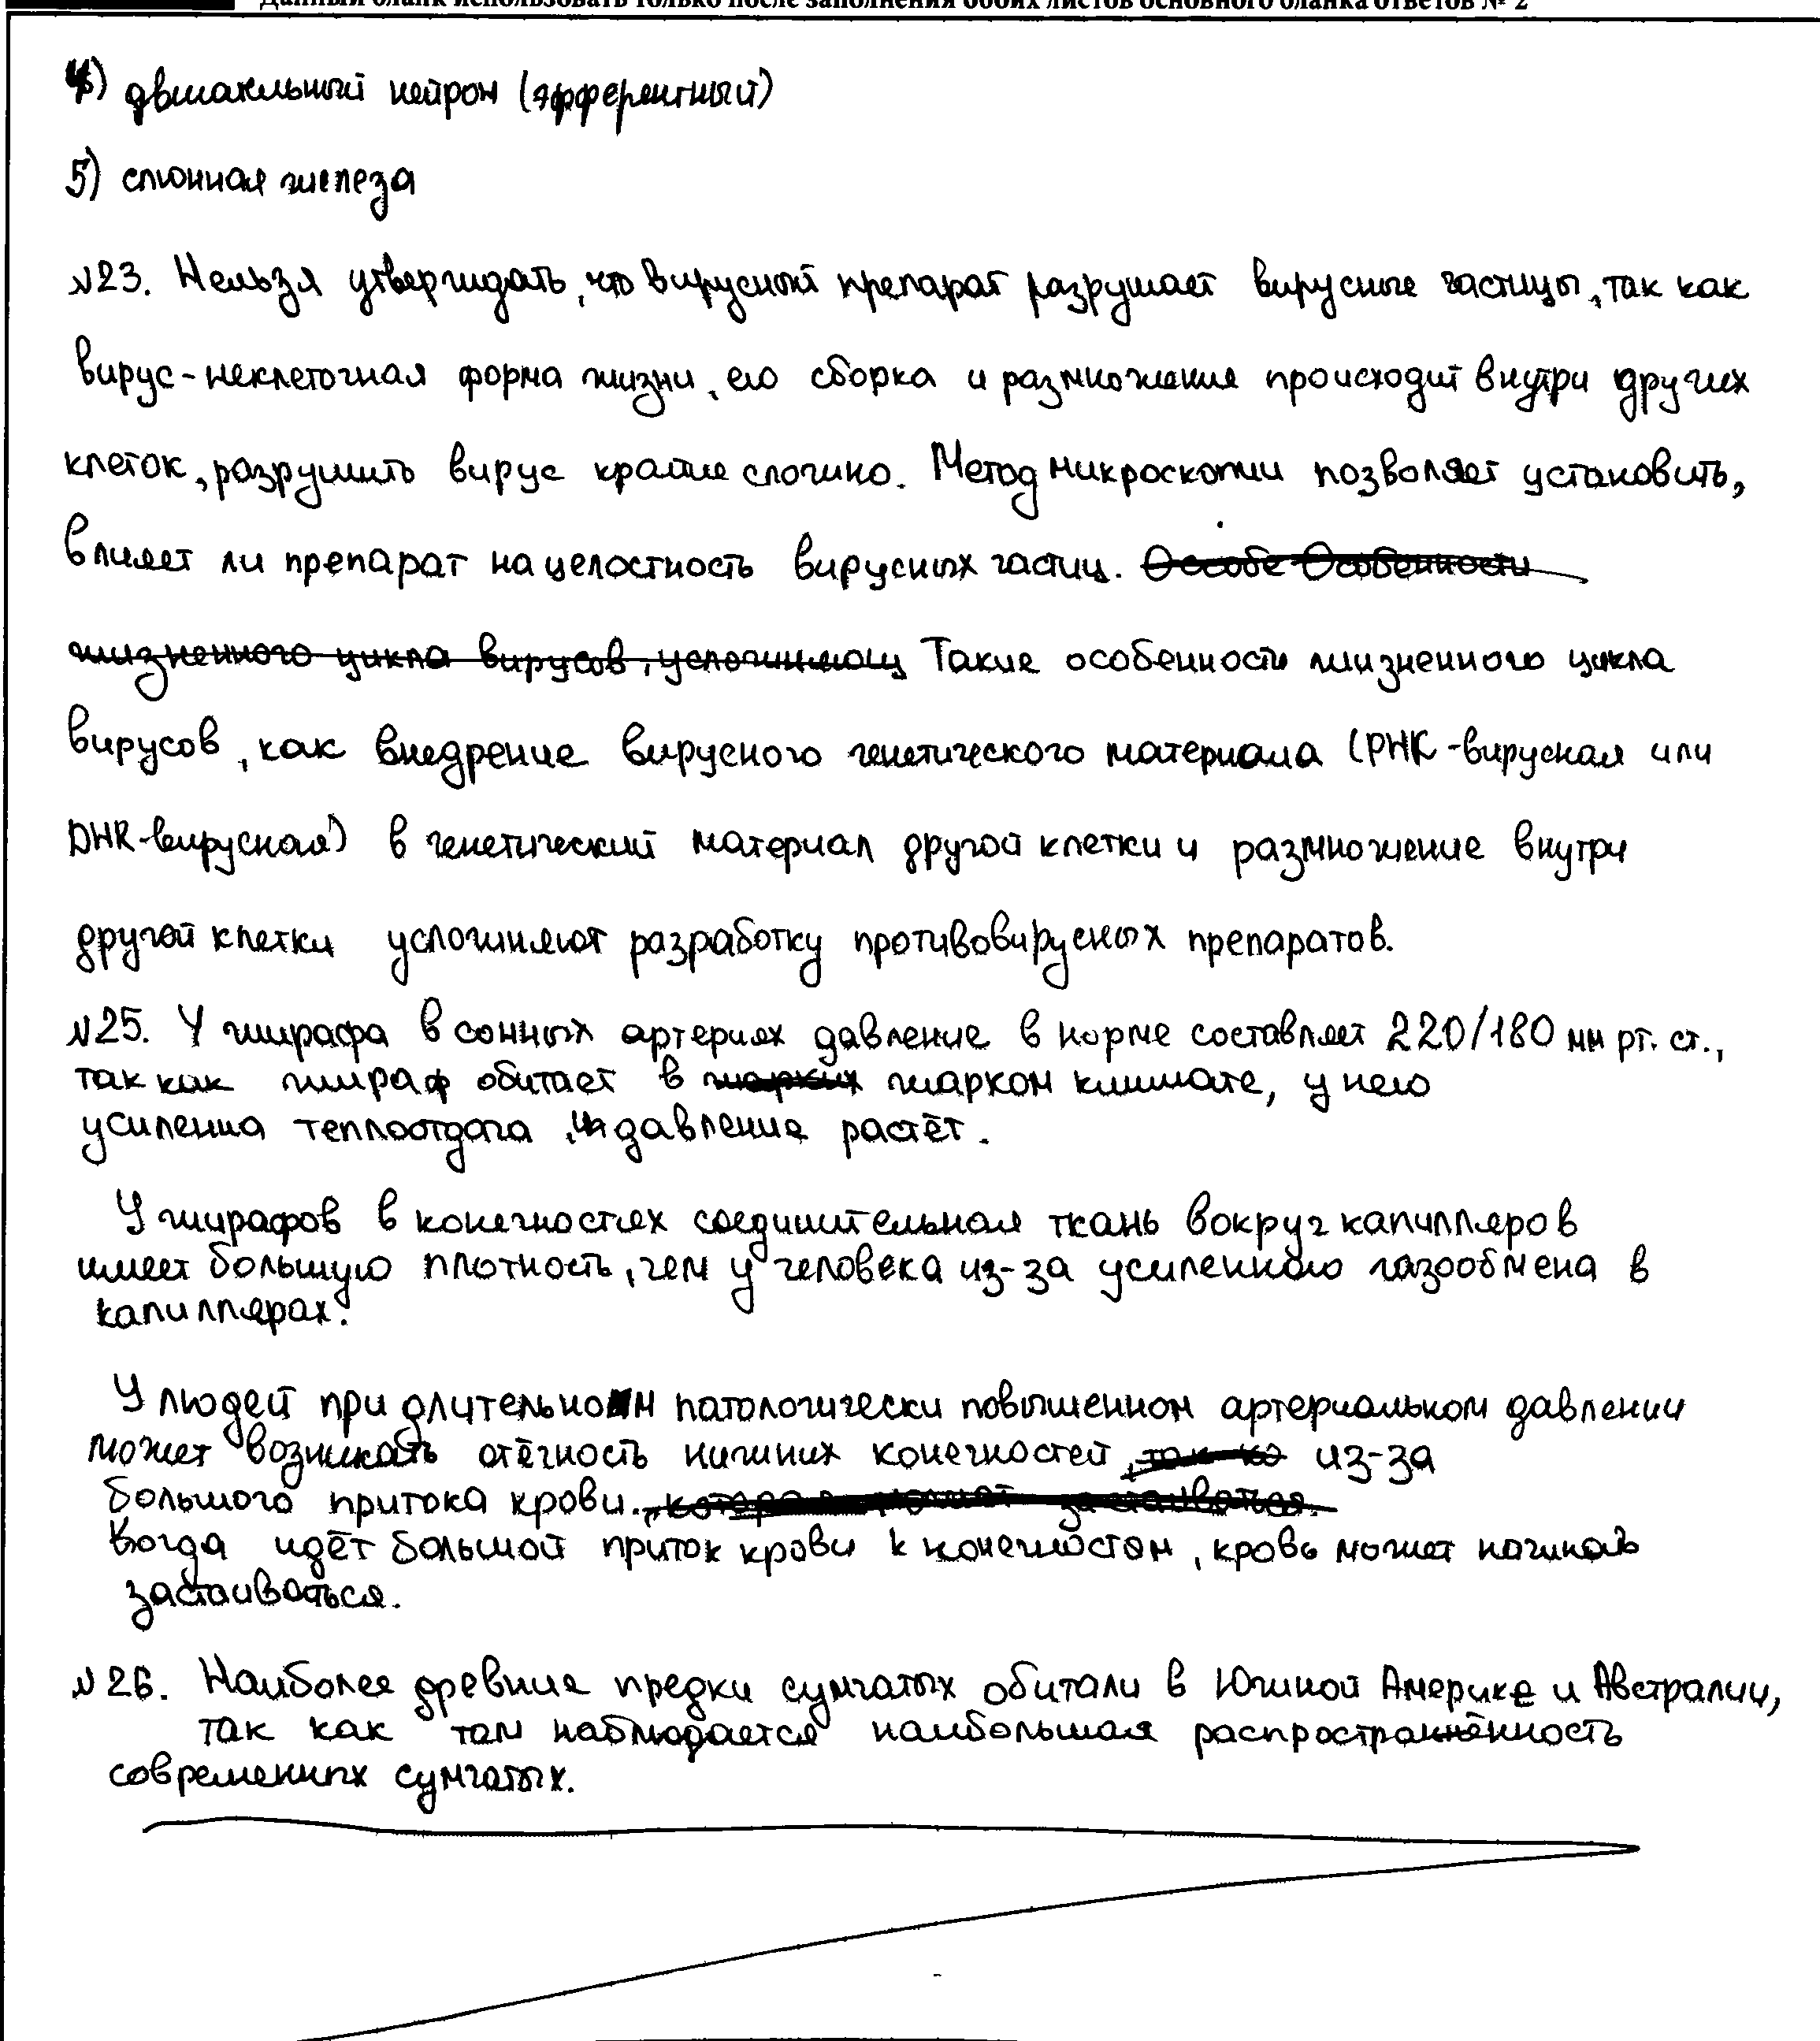 Данный бланк использовать только после заполнения обоих листов основного бланка ответов № 2
4) двигательный нейрон (эфферентный)
5) слюнная железа
№23. Нельзя утверждать, что вирусный препарат разрушает вирусные частицы, так как
вирус-неклеточная форма жизни, его сборка и размножение происходит внутри других
клеток, разрушить вирус крайне сложно. Метод микроскопии позволяет установить,
влияет ли препарат на целостность вирусных частиц. Особе Особенности
жизненного цикла вирусов, усложняющ Такие особенности жизненного цикла
вирусов, как внедрение вирусного генетического материала (РНК-вирусная или
ДНК-вирусная) в генетический материал другой клетки и размножение внутри
другой клетки усложняют разработку противовирусных препаратов.
№25. У жирафа в сонных артериях давление в норме составляет 220/180 мм рт. ст.,
так как жираф обитает в жарких жарком климате, у него
усиленна теплоотдача, давление растёт.
У жирафов в конечностях соединительная ткань вокруг капилляров
имеет большую плотность, чем у человека из-за усиленного газообмена в
капиллярах.
У людей при длительном патологически повышенном артериальном давлении
может возникать отёчность нижних конечностей, так ка из-за
большого притока крови., которая может застаиваться.
Когда идёт большой приток крови к конечностям, кровь может начинать
застаиваться.
№26. Наиболее древние предки сумчатых обитали в Южной Америке и Австралии,
так как там наблюдается наибольшая распространённость
современных сумчатых.